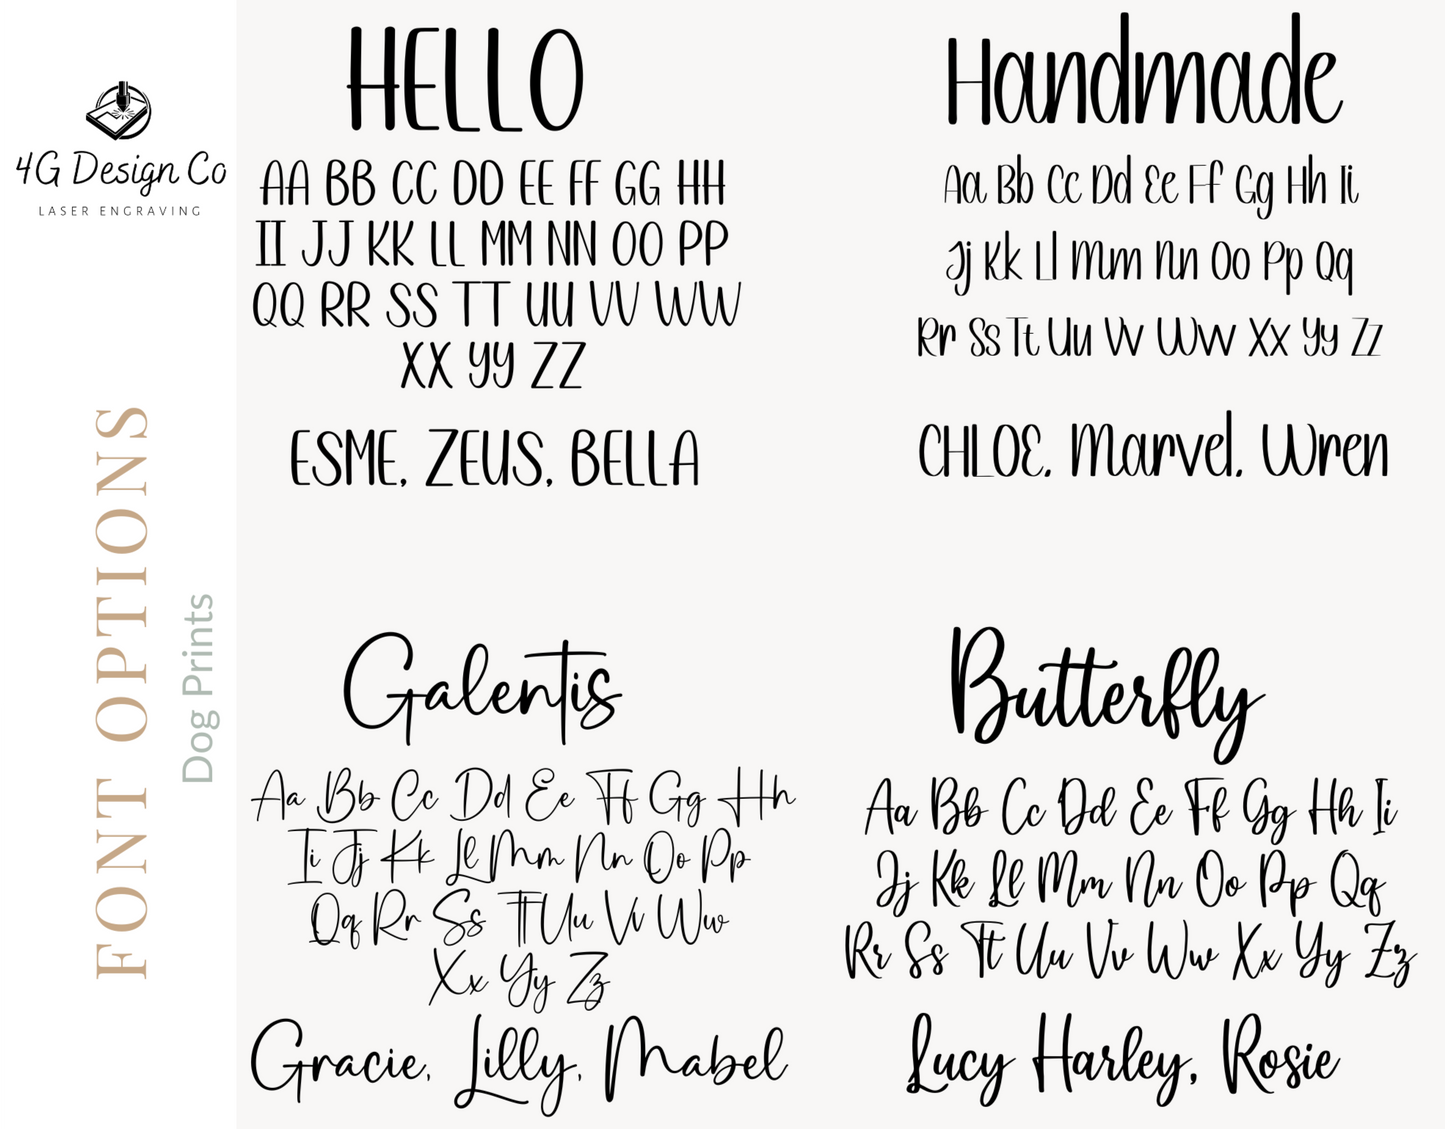 4G Design Co
LASER ENGRAVING
FONT OPTIONS
Dog Prints
HELLO
AA BB CC DD EE FF GG HH
II JJ KK LL MM NN OO PP
QQ RR SS TT UU VV WW
XX YY ZZ
ESME, ZEUS, BELLA
Handmade
Aa Bb Cc Dd Ee Ff Gg Hh Ii
Jj Kk Ll Mm Nn Oo Pp Qq
Rr Ss Tt Uu Vv Ww Xx Yy Zz
CHLOE. Marvel. Wren
Galentis
Aa Bb Cc Dd Ee Ff Gg Hh
Ii Jj Kk Ll Mm Nn Oo Pp
Qq Rr Ss Tt Uu Vv Ww
Xx Yy Zz
Gracie, Lilly, Mabel
Butterfly
Aa Bb Cc Dd Ee Ff Gg Hh Ii
Jj Kk Ll Mm Nn Oo Pp Qq
Rr Ss Tt Uu Vv Ww Xx Yy Zz
Lucy Harley, Rosie